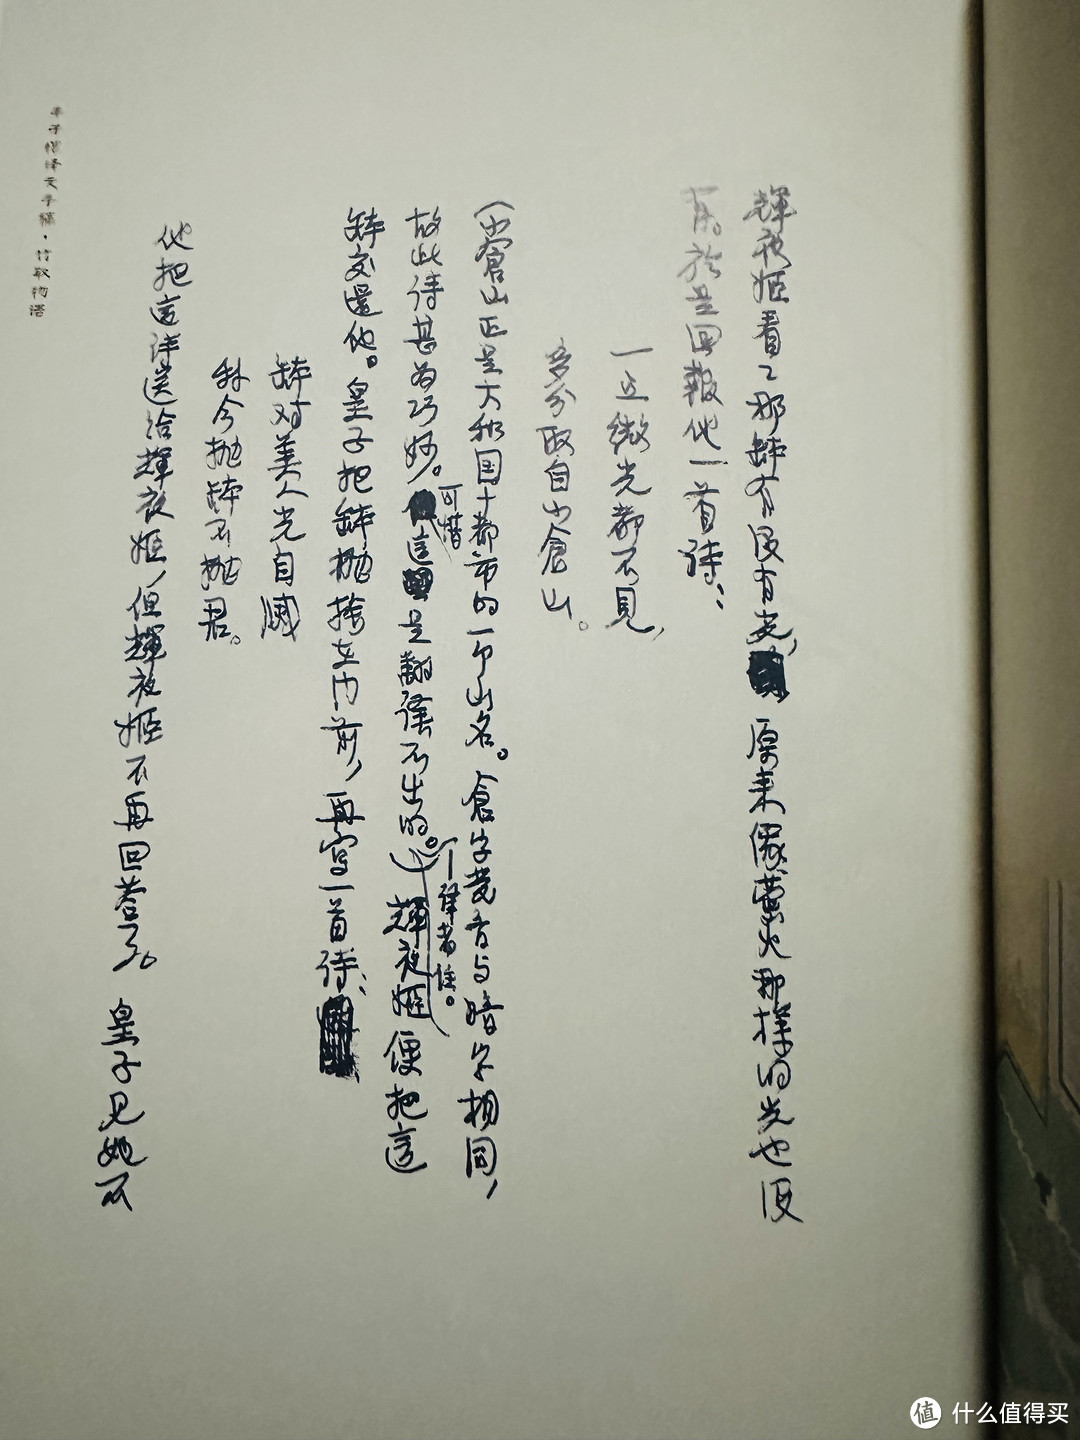 輝夜姬看了那缽有没有光，原来像萤火那样的光也没
有。於是回報他一首诗：
一点微光都不見，
多分取自小倉山。
（小倉山正是大和国十都市的一个山名。倉字发音与暗字相同，
故此诗甚为巧妙。可惜這是翻译不出的。——译者注。）輝夜姬便把這
缽交還他。皇子把缽抛捨在门前，再写一首诗：
缽对美人光自减
我今抛缽不抛君。
他把這诗送给輝夜姬，但輝夜姬不再回答了。皇子見她不
丰子愷译文手稿·竹取物语
值 什么值得买